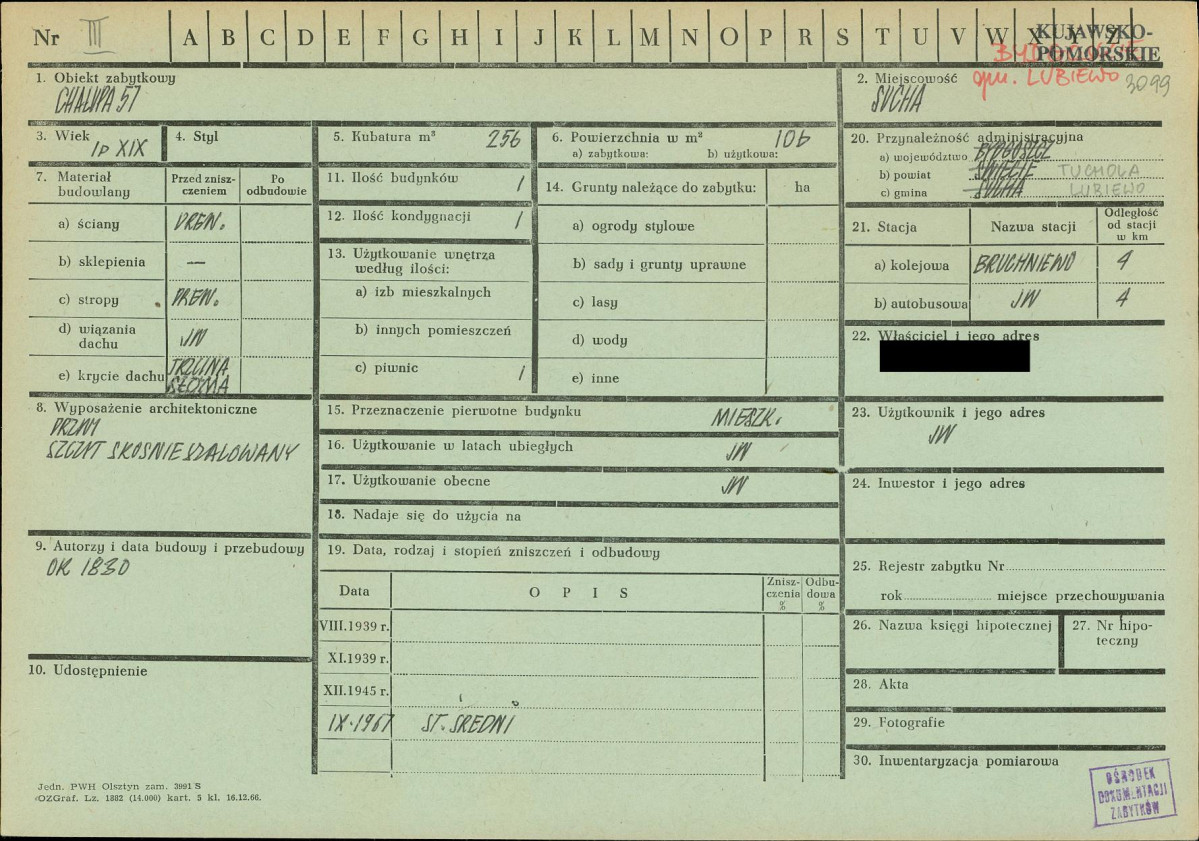 Nr III A B C D E F G H I J K L M N O P R S T U V W X Y Z
KUJAWSKO-
POMORSKIE
gm. LUBIEWO 3099
1. Obiekt zabytkowy
CHAŁUPA 57
2. Miejscowość
SUCHA
3. Wiek
Ip XIX
4. Styl
5. Kubatura m³ 256
6. Powierzchnia w m² 106
a) zabytkowa: b) użytkowa:
7. Materiał
budowlany
Przed znisz-
czeniem
Po
odbudowie
a) ściany DREW.
b) sklepienia —
c) stropy DREW.
d) wiązania
dachu JW
e) krycie dachu TRZCINA
SŁOMA
8. Wyposażenie architektoniczne
SZCZYT SKOSNIE SZALOWANY
9. Autorzy i data budowy i przebudowy
OK 1830
10. Udostępnienie
11. Ilość budynków 1
12. Ilość kondygnacji 1
13. Użytkowanie wnętrza
według ilości:
a) izb mieszkalnych
b) innych pomieszczeń
c) piwnic 1
14. Grunty należące do zabytku: ha
a) ogrody stylowe
b) sady i grunty uprawne
c) lasy
d) wody
e) inne
15. Przeznaczenie pierwotne budynku MIESZK.
16. Użytkowanie w latach ubiegłych JW
17. Użytkowanie obecne JW
18. Nadaje się do użycia na
19. Data, rodzaj i stopień zniszczeń i odbudowy
Data O P I S Znisz-
czenia
% Odbu-
dowa
%
VIII.1939 r.
XI.1939 r.
XII.1945 r.
IX.1967 ST. SREDNI
20. Przynależność administracyjna
a) województwo BYDGOSZCZ
b) powiat ŚWIECIE TUCHOLA
c) gmina SUCHA LUBIEWO
21. Stacja Nazwa stacji Odległość
od stacji
w km
a) kolejowa BRUCHNIEWO 4
b) autobusowa JW 4
22. Właściciel i jego adres
23. Użytkownik i jego adres
JW
24. Inwestor i jego adres
25. Rejestr zabytku Nr
rok miejsce przechowywania
26. Nazwa księgi hipotecznej
27. Nr hipo-
teczny
28. Akta
29. Fotografie
30. Inwentaryzacja pomiarowa
OŚRODEK
DOKUMENTACJI
ZABYTKÓW
Jedn. PWH Olsztyn zam. 3991 S
OZGraf. Lz. 1882 (14.000) kart. 5 kl. 16.12.66.